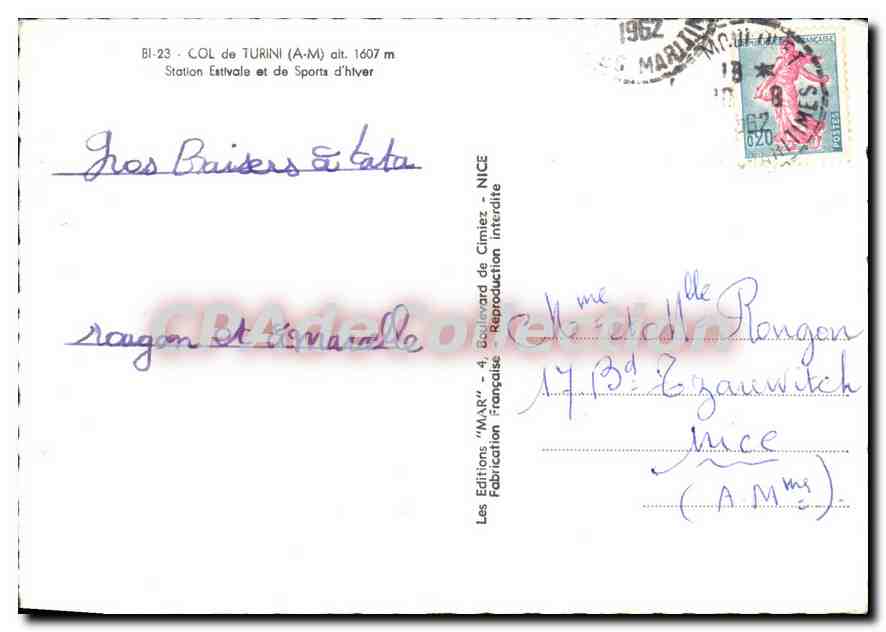 BI-23 - COL de TURINI (A-M) alt. 1607 m
Station Estivale et de Sports d'hiver
Gros Baisers à tata
rougon et
CPAdeCollection
Les Editions "MAR" - 4, Boulevard de Cimiez - NICE
Fabrication Française - Reproduction interdite
1962
MARITIM
MOULINET
18 *
8
962
RITIMES
0,20
POSTES
Mme et Mlle Rougon
17 Bd Tzarewitch
Nice
(A.Mmes).